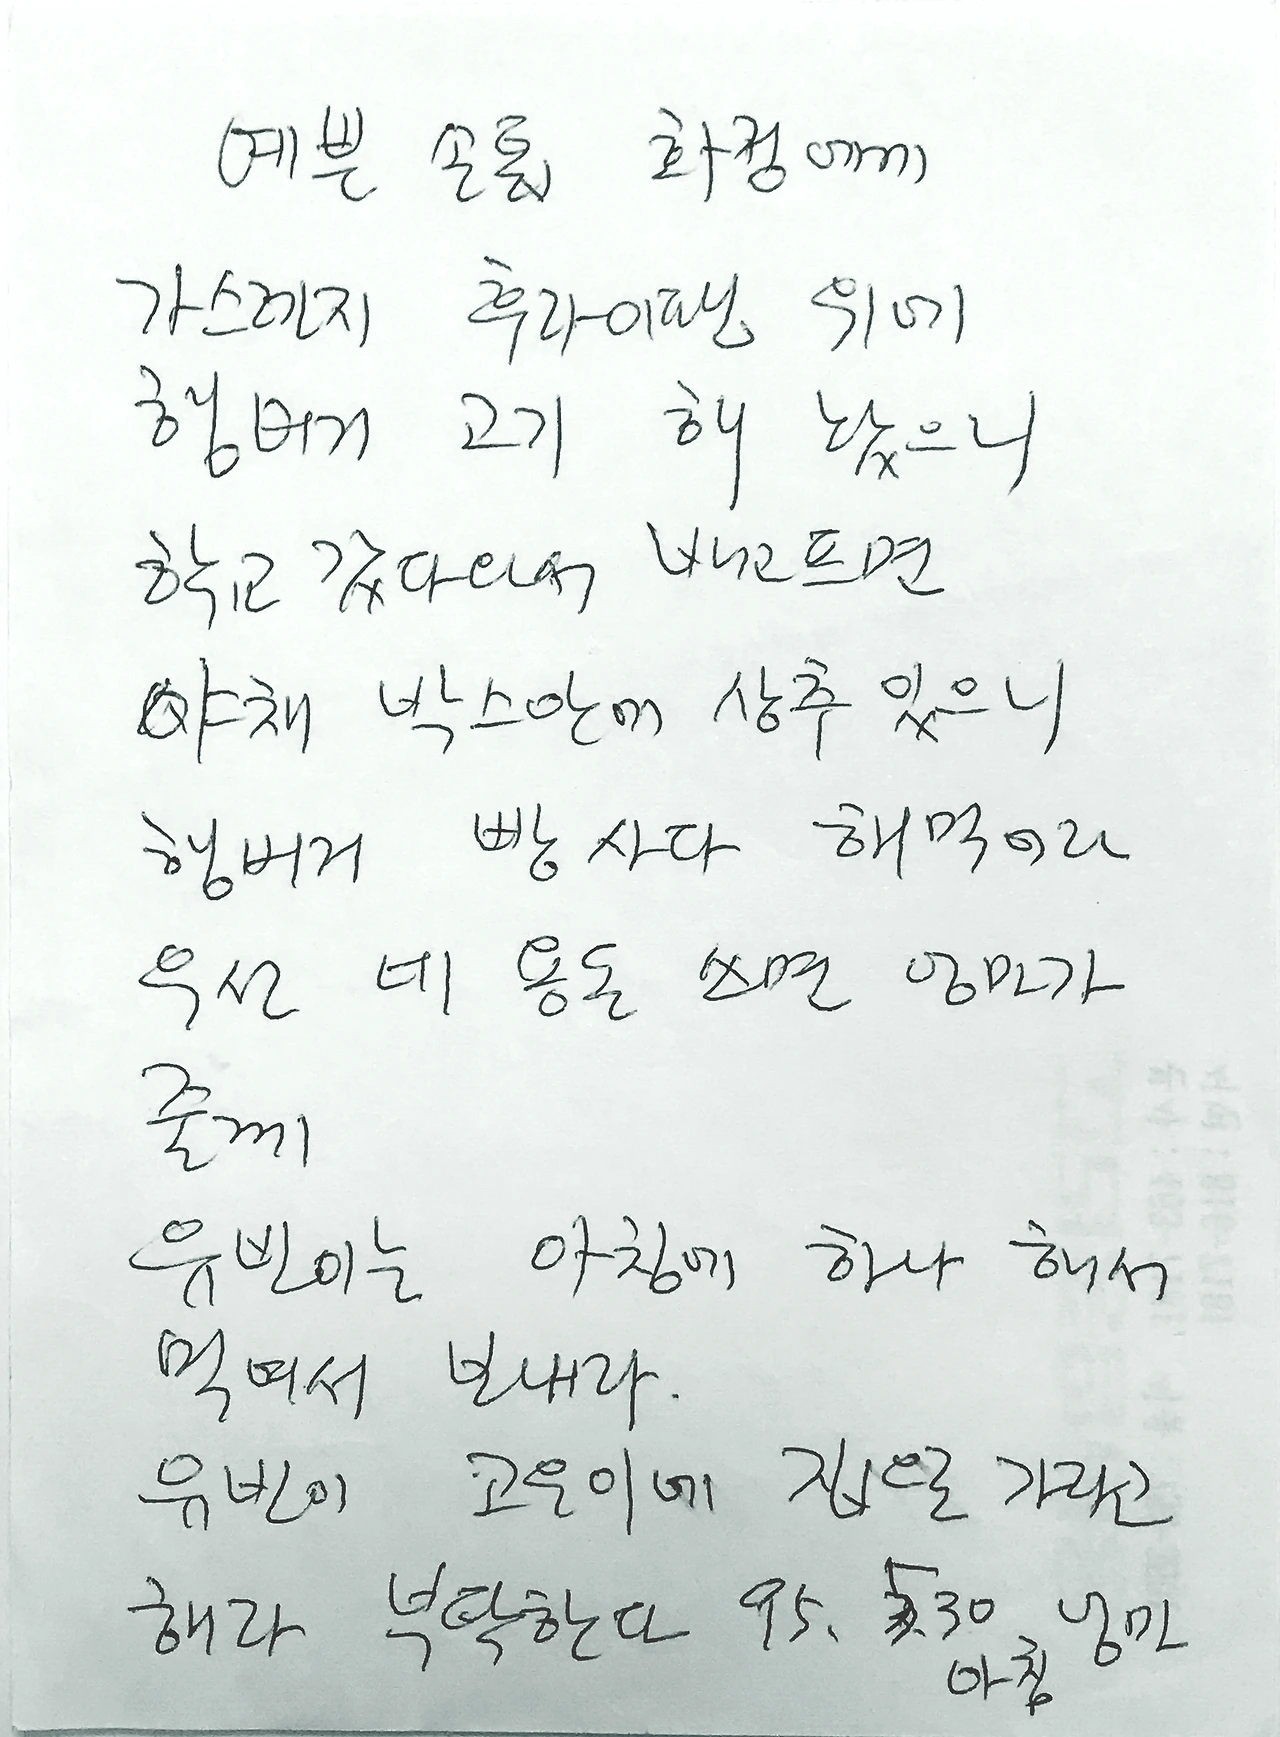 예쁜 손톱 화정에게
가스렌지 후라이팬 위에
햄버거 고기 해 놨으니
학교 갔다와서 배고프면
야채 박스안에 상추 있으니
햄버거 빵 사다 해먹어라
우선 네 용돈 쓰면 엄마가
줄께
유빈이는 아침에 하나 해서
먹여서 보내라.
유빈이 고은이네 집으로 가라고
해라 부탁한다 95. 30 엄마
아침